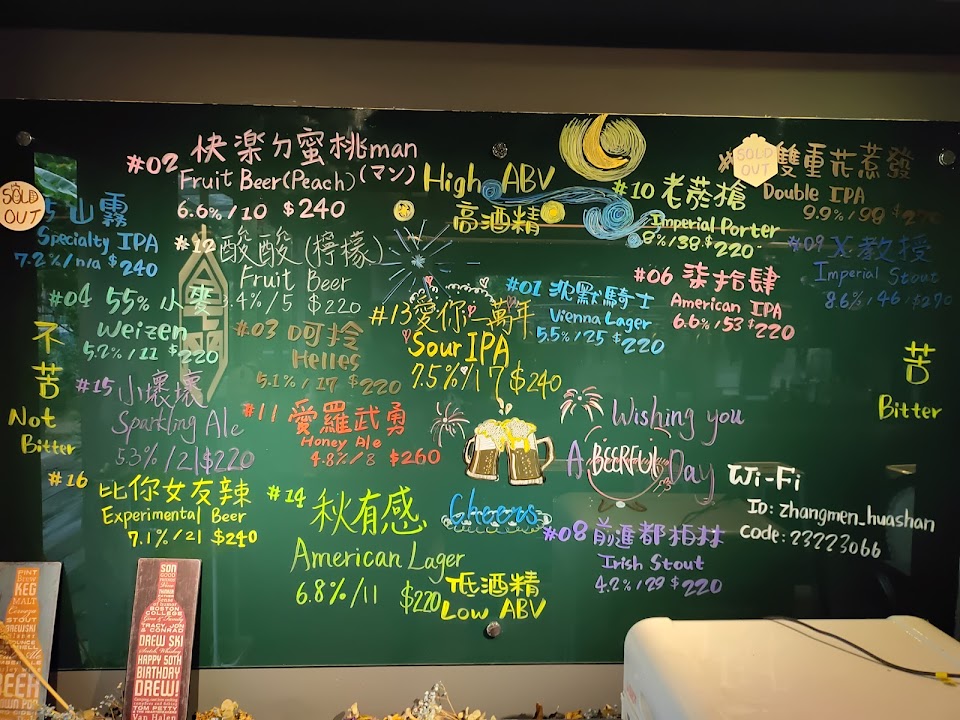 #02 快楽ㄉ蜜桃man
Fruit Beer(Peach)(マン)
6.6%/10 $240
High ABV
高酒精
SOLD OUT
雙重花惹發
Double IPA
9.9%/98
#10 老蔘槍
Imperial Porter
8%/38 $220
SOLD OUT
山霧
Specialty IPA
7.2%/n/a $240
#12 酸酸(檸檬)
Fruit Beer
3.4%/5 $220
#09 X教授
Imperial Stout
8.6%/46/$270
#06 柒拾肆
American IPA
6.6%/53 $220
#01 沈默騎士
Vienna Lager
5.5%/25 $220
#04 55%小麥
Weizen
5.2%/11 $220
#13 愛你一萬年
Sour IPA
7.5%/17 $240
#03 呵拎
Helles
5.1%/17 $220
不苦
Not
Bitter
苦
Bitter
#15 小壞壞
Sparkling Ale
5.3%/21 $220
#11 愛羅武勇
Honey Ale
4.8%/8 $260
Wishing you
A BEERFUL Day
#16
比你女友辣
Experimental Beer
7.1%/21 $240
#14 秋有感
American Lager
6.8%/11 $220
Cheers
Wi-Fi
ID: zhangmen_huashan
Code: 23223066
#08 前進都柏林
Irish Stout
4.2%/29 $220
低酒精
Low ABV
PINT
KEG
MALT
STOUT
DREWSKI
BEER
SON
BOSTON
COLLEGE
TRACY, JON
& CONRAD
DREW SKI
HAPPY 50TH
BIRTHDAY
DREW!
TOM PETTY
Van Halen